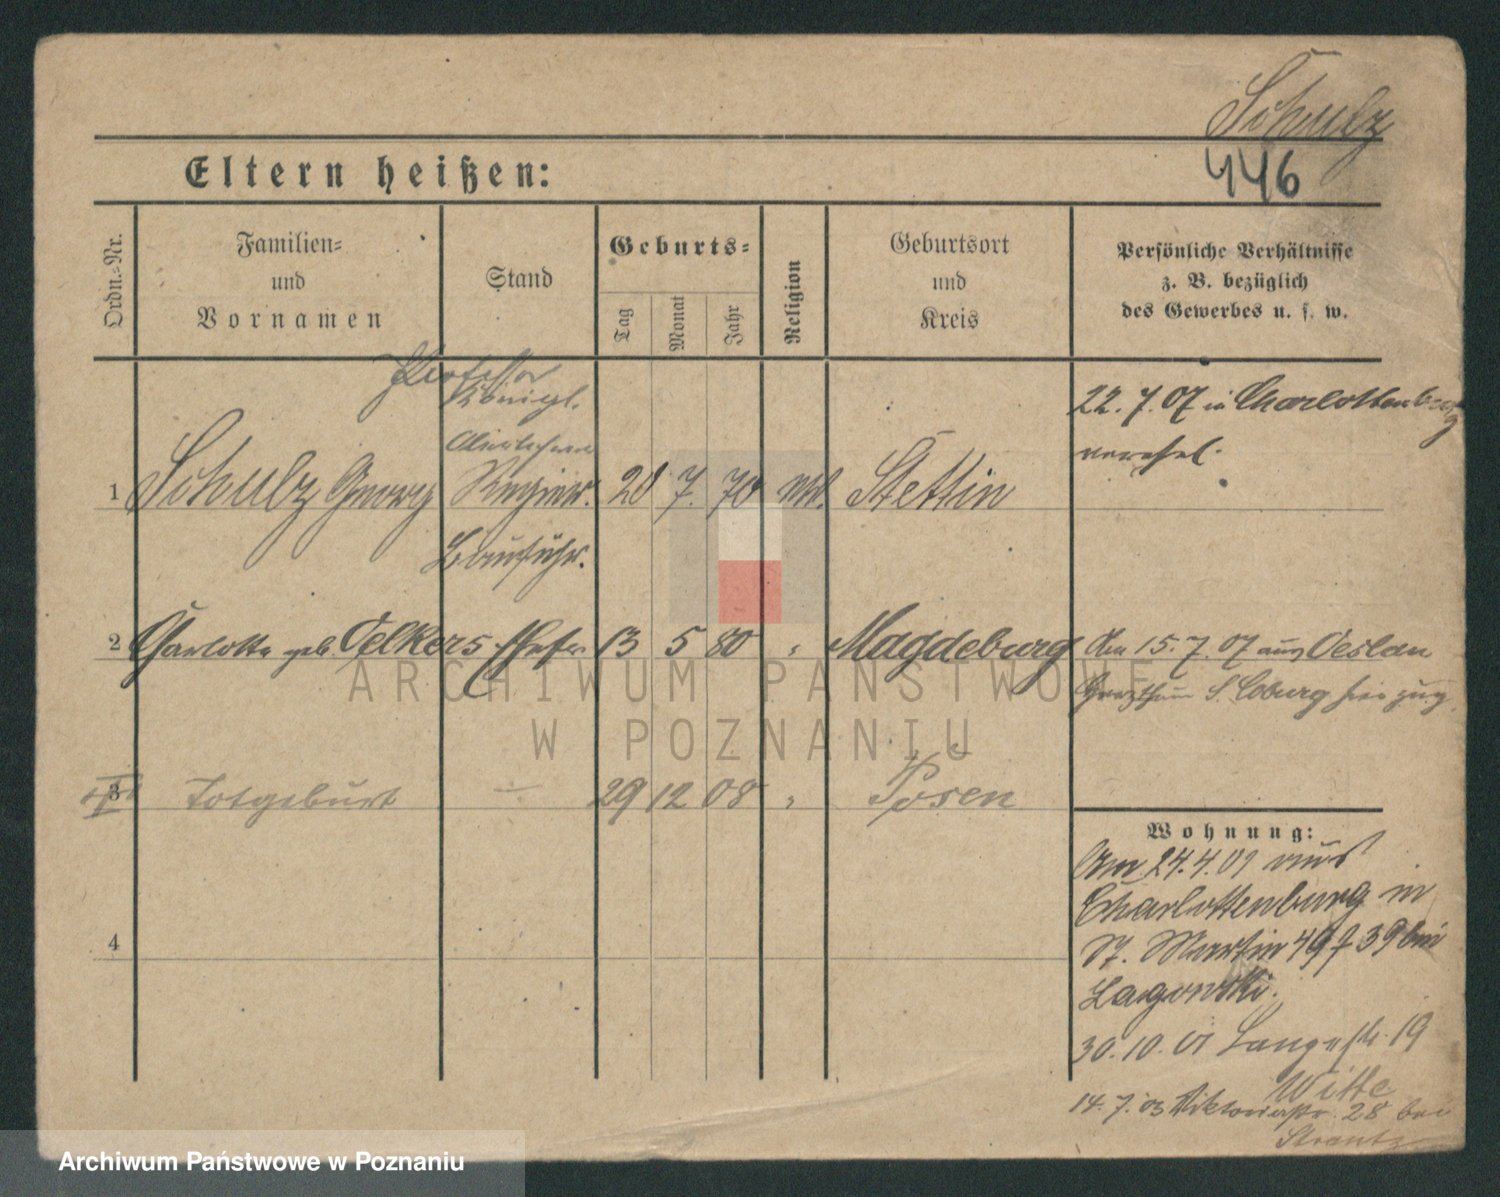 Schulz
446
Eltern heißen:
Ordn.-Nr.
Familien-
und
Vornamen
Stand
Geburts-
Tag
Monat
Jahr
Religion
Geburtsort
und
Kreis
Persönliche Verhältnisse
z. B. bezüglich
des Gewerbes u. s. w.
Professor
Königl.
1 Schulz Georg Regier. 20 7. 70 Stettin
Bauführ.
22. 7. 07 in Charlottenburg
verehel.
2 Charlotte geb. Oelkers Ehefr. 13 5 80 " Magdeburg
Am 15. 7. 07 aus Oeslau
S. Coburg hier zug.
3 Totgeburt — 29 12 08 " Posen
4
Wohnung:
Am 24.4.01 aus
Charlottenburg in
St. Martin 39 bei
Lagowski.
30. 10. 01 Langestr. 19
Witte
14. 7. 03 Viktoriastr. 28 bei
ARCHIWUM PAŃSTWOWE
W POZNANIU
Archiwum Państwowe w Poznaniu